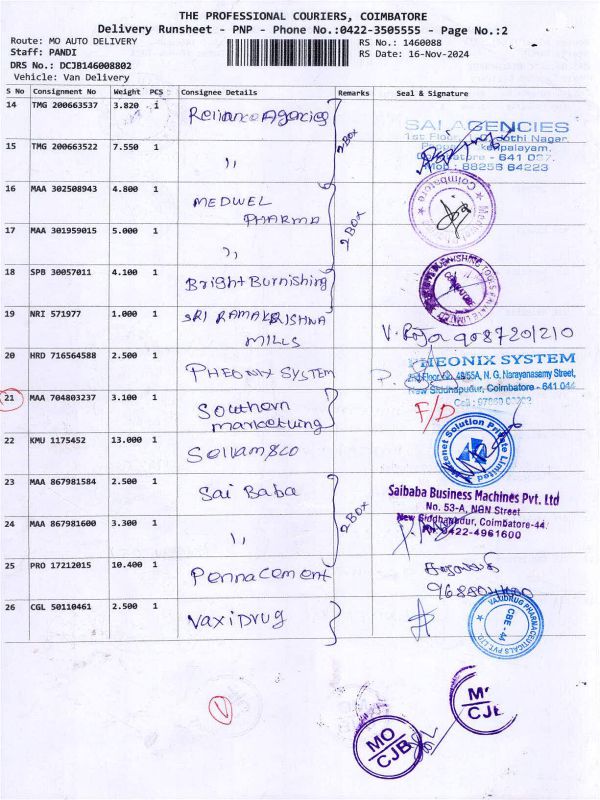 THE PROFESSIONAL COURIERS, COIMBATORE
Delivery Runsheet - PNP - Phone No.:0422-3505555 - Page No.:2
Route: MO AUTO DELIVERY
RS No.: 1460088
Staff: PANDI
RS Date: 16-Nov-2024
DRS No.: DCJB146008802
Vehicle: Van Delivery
S No Consignment No Weight PCS Consignee Details Remarks Seal & Signature
14 TMG 200663537 3.820 1 Reliance Agencies
2 Box
SAI AGENCIES
1st Floor, Nagar,
15 TMG 200663522 7.550 1 ,,
palayam,
- 641 037.
Mob : 88256 84223
16 MAA 302508943 4.800 1 MEDWEL
PHARMA
2 Box
Coimbatore
17 MAA 301959015 5.000 1 ,,
18 SPB 30057011 4.100 1 Bright Burnishing
19 NRI 571977 1.000 1 SRI RAMAKRISHNA
MILLS
V. Roja 9087201210
20 HRD 716564588 2.500 1 PHEONIX SYSTEM
PHEONIX SYSTEM
49/55A, N. G. Narayanasamy Street,
New Siddhapudur, Coimbatore - 641 044
21 MAA 704803237 3.100 1 Southern
marketuing
F/D
22 KMU 1175452 13.000 1 Selvam&co
Solution Private Limited
23 MAA 867981584 2.500 1 Sai Baba
2 Box
Saibaba Business Machines Pvt. Ltd
No. 53-A, NGN Street
24 MAA 867981600 3.300 1 ,,
New Siddhapudur, Coimbatore-44.
Ph: 0422-4961600
25 PRO 17212015 10.400 1 Pennacement
26 CGL 50110461 2.500 1 Vaxidrug
VAXIDRUG PHARMACEUTICALS PVT. LTD.
CBE - 44
V
MO
CJB
M
CJB